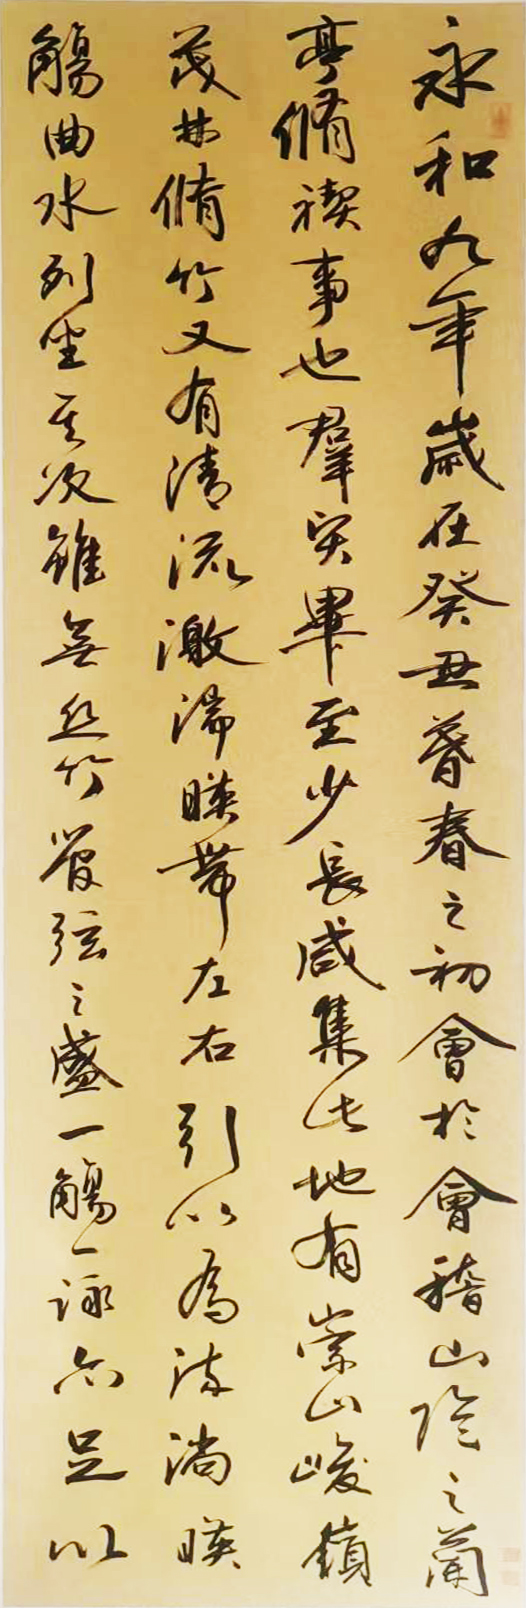 永和九年歲在癸丑暮春之初會於會稽山陰之蘭
亭脩禊事也群賢畢至少長咸集此地有崇山峻領
茂林脩竹又有清流激湍暎帶左右引以為流暎
觴曲水列坐其次雖無絲竹管弦之盛一觴一詠亦足以